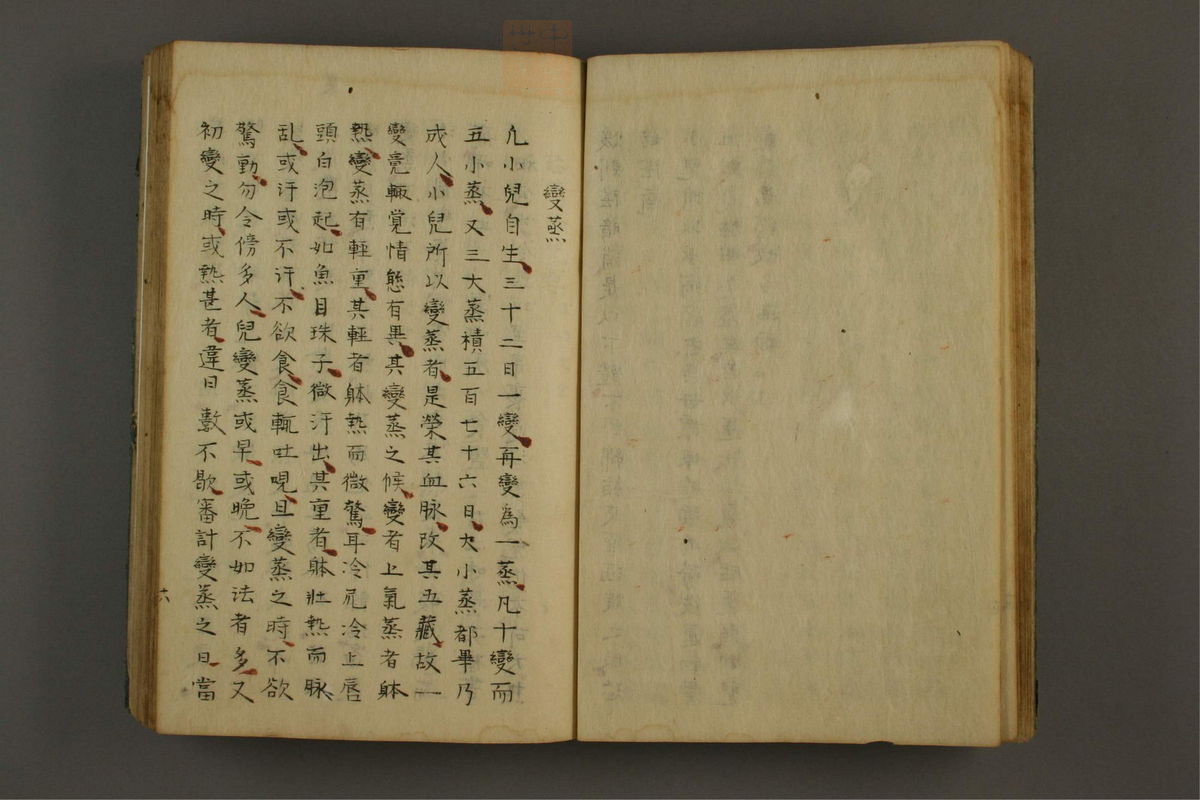 變蒸
凢小兒自生三十二日一變再變為一蒸凡十變而
五小蒸又三大蒸積五百七十六日大小蒸都畢乃
成人小兒所以變蒸者是榮其血脉改其五藏故一
變竟輙覚情態有異其變蒸之候變者上氣蒸者躰
熱變蒸有輕重其輕者躰熱而微驚耳冷尻冷上唇
頭白泡起如魚目珠子微汗出其重者躰壯熱而脉
乱或汗或不汗不欲食食輙吐哯且變蒸之時不欲
驚動勿令傍多人兒變蒸或早或晩不如法者多又
初變之時或熱甚者違日數不歇審計變蒸之日當
六